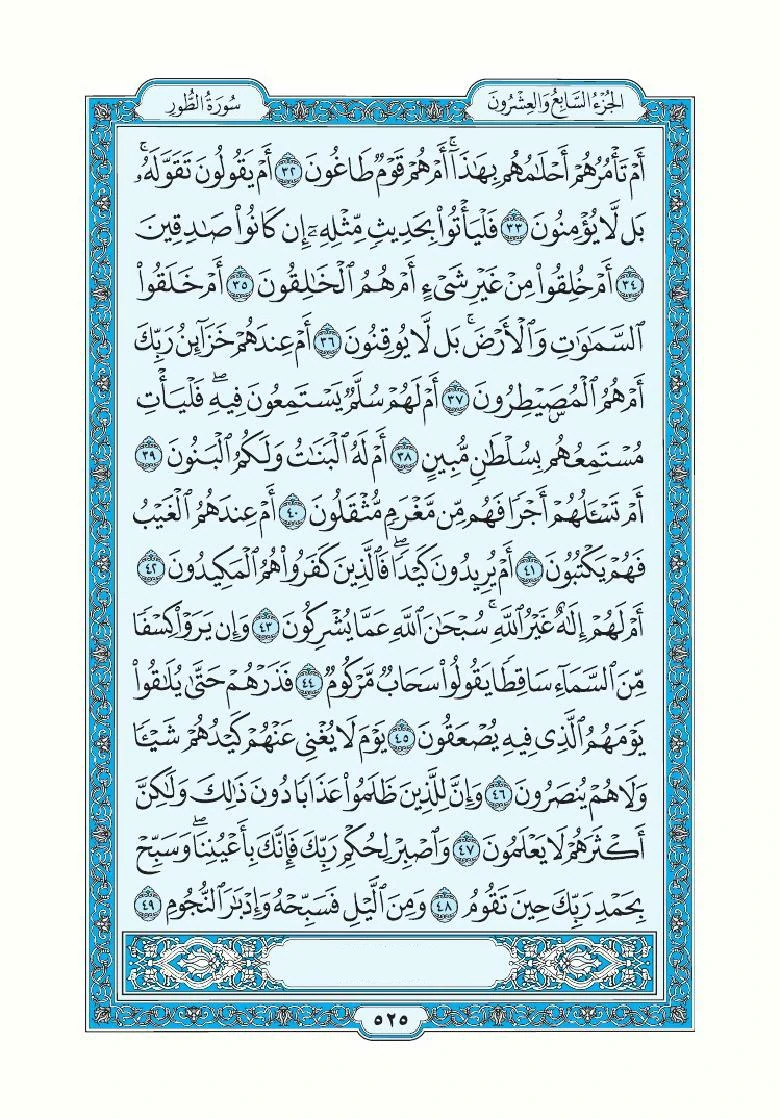 الجزء السابع والعشرون
سورة الطور
أَمْ تَأْمُرُهُمْ أَحْلَٰمُهُم بِهَٰذَآ ۚ أَمْ هُمْ قَوْمٌ طَاغُونَ ٣٢ أَمْ يَقُولُونَ تَقَوَّلَهُۥ ۚ
بَل لَّا يُؤْمِنُونَ ٣٣ فَلْيَأْتُوا۟ بِحَدِيثٍ مِّثْلِهِۦٓ إِن كَانُوا۟ صَٰدِقِينَ
٣٤ أَمْ خُلِقُوا۟ مِنْ غَيْرِ شَىْءٍ أَمْ هُمُ ٱلْخَٰلِقُونَ ٣٥ أَمْ خَلَقُوا۟
ٱلسَّمَٰوَٰتِ وَٱلْأَرْضَ ۚ بَل لَّا يُوقِنُونَ ٣٦ أَمْ عِندَهُمْ خَزَآئِنُ رَبِّكَ
أَمْ هُمُ ٱلْمُصَۣيْطِرُونَ ٣٧ أَمْ لَهُمْ سُلَّمٌ يَسْتَمِعُونَ فِيهِ ۖ فَلْيَأْتِ
مُسْتَمِعُهُم بِسُلْطَٰنٍ مُّبِينٍ ٣٨ أَمْ لَهُ ٱلْبَنَٰتُ وَلَكُمُ ٱلْبَنُونَ ٣٩
أَمْ تَسْـَٔلُهُمْ أَجْرًا فَهُم مِّن مَّغْرَمٍ مُّثْقَلُونَ ٤٠ أَمْ عِندَهُمُ ٱلْغَيْبُ
فَهُمْ يَكْتُبُونَ ٤١ أَمْ يُرِيدُونَ كَيْدًا ۖ فَٱلَّذِينَ كَفَرُوا۟ هُمُ ٱلْمَكِيدُونَ ٤٢
أَمْ لَهُمْ إِلَٰهٌ غَيْرُ ٱللَّهِ ۚ سُبْحَٰنَ ٱللَّهِ عَمَّا يُشْرِكُونَ ٤٣ وَإِن يَرَوْا۟ كِسْفًا
مِّنَ ٱلسَّمَآءِ سَاقِطًا يَقُولُوا۟ سَحَابٌ مَّرْكُومٌ ٤٤ فَذَرْهُمْ حَتَّىٰ يُلَٰقُوا۟
يَوْمَهُمُ ٱلَّذِى فِيهِ يُصْعَقُونَ ٤٥ يَوْمَ لَا يُغْنِى عَنْهُمْ كَيْدُهُمْ شَيْـًٔا
وَلَا هُمْ يُنصَرُونَ ٤٦ وَإِنَّ لِلَّذِينَ ظَلَمُوا۟ عَذَابًا دُونَ ذَٰلِكَ وَلَٰكِنَّ
أَكْثَرَهُمْ لَا يَعْلَمُونَ ٤٧ وَٱصْبِرْ لِحُكْمِ رَبِّكَ فَإِنَّكَ بِأَعْيُنِنَا ۖ وَسَبِّحْ
بِحَمْدِ رَبِّكَ حِينَ تَقُومُ ٤٨ وَمِنَ ٱلَّيْلِ فَسَبِّحْهُ وَإِدْبَٰرَ ٱلنُّجُومِ ٤٩
٥٢٥